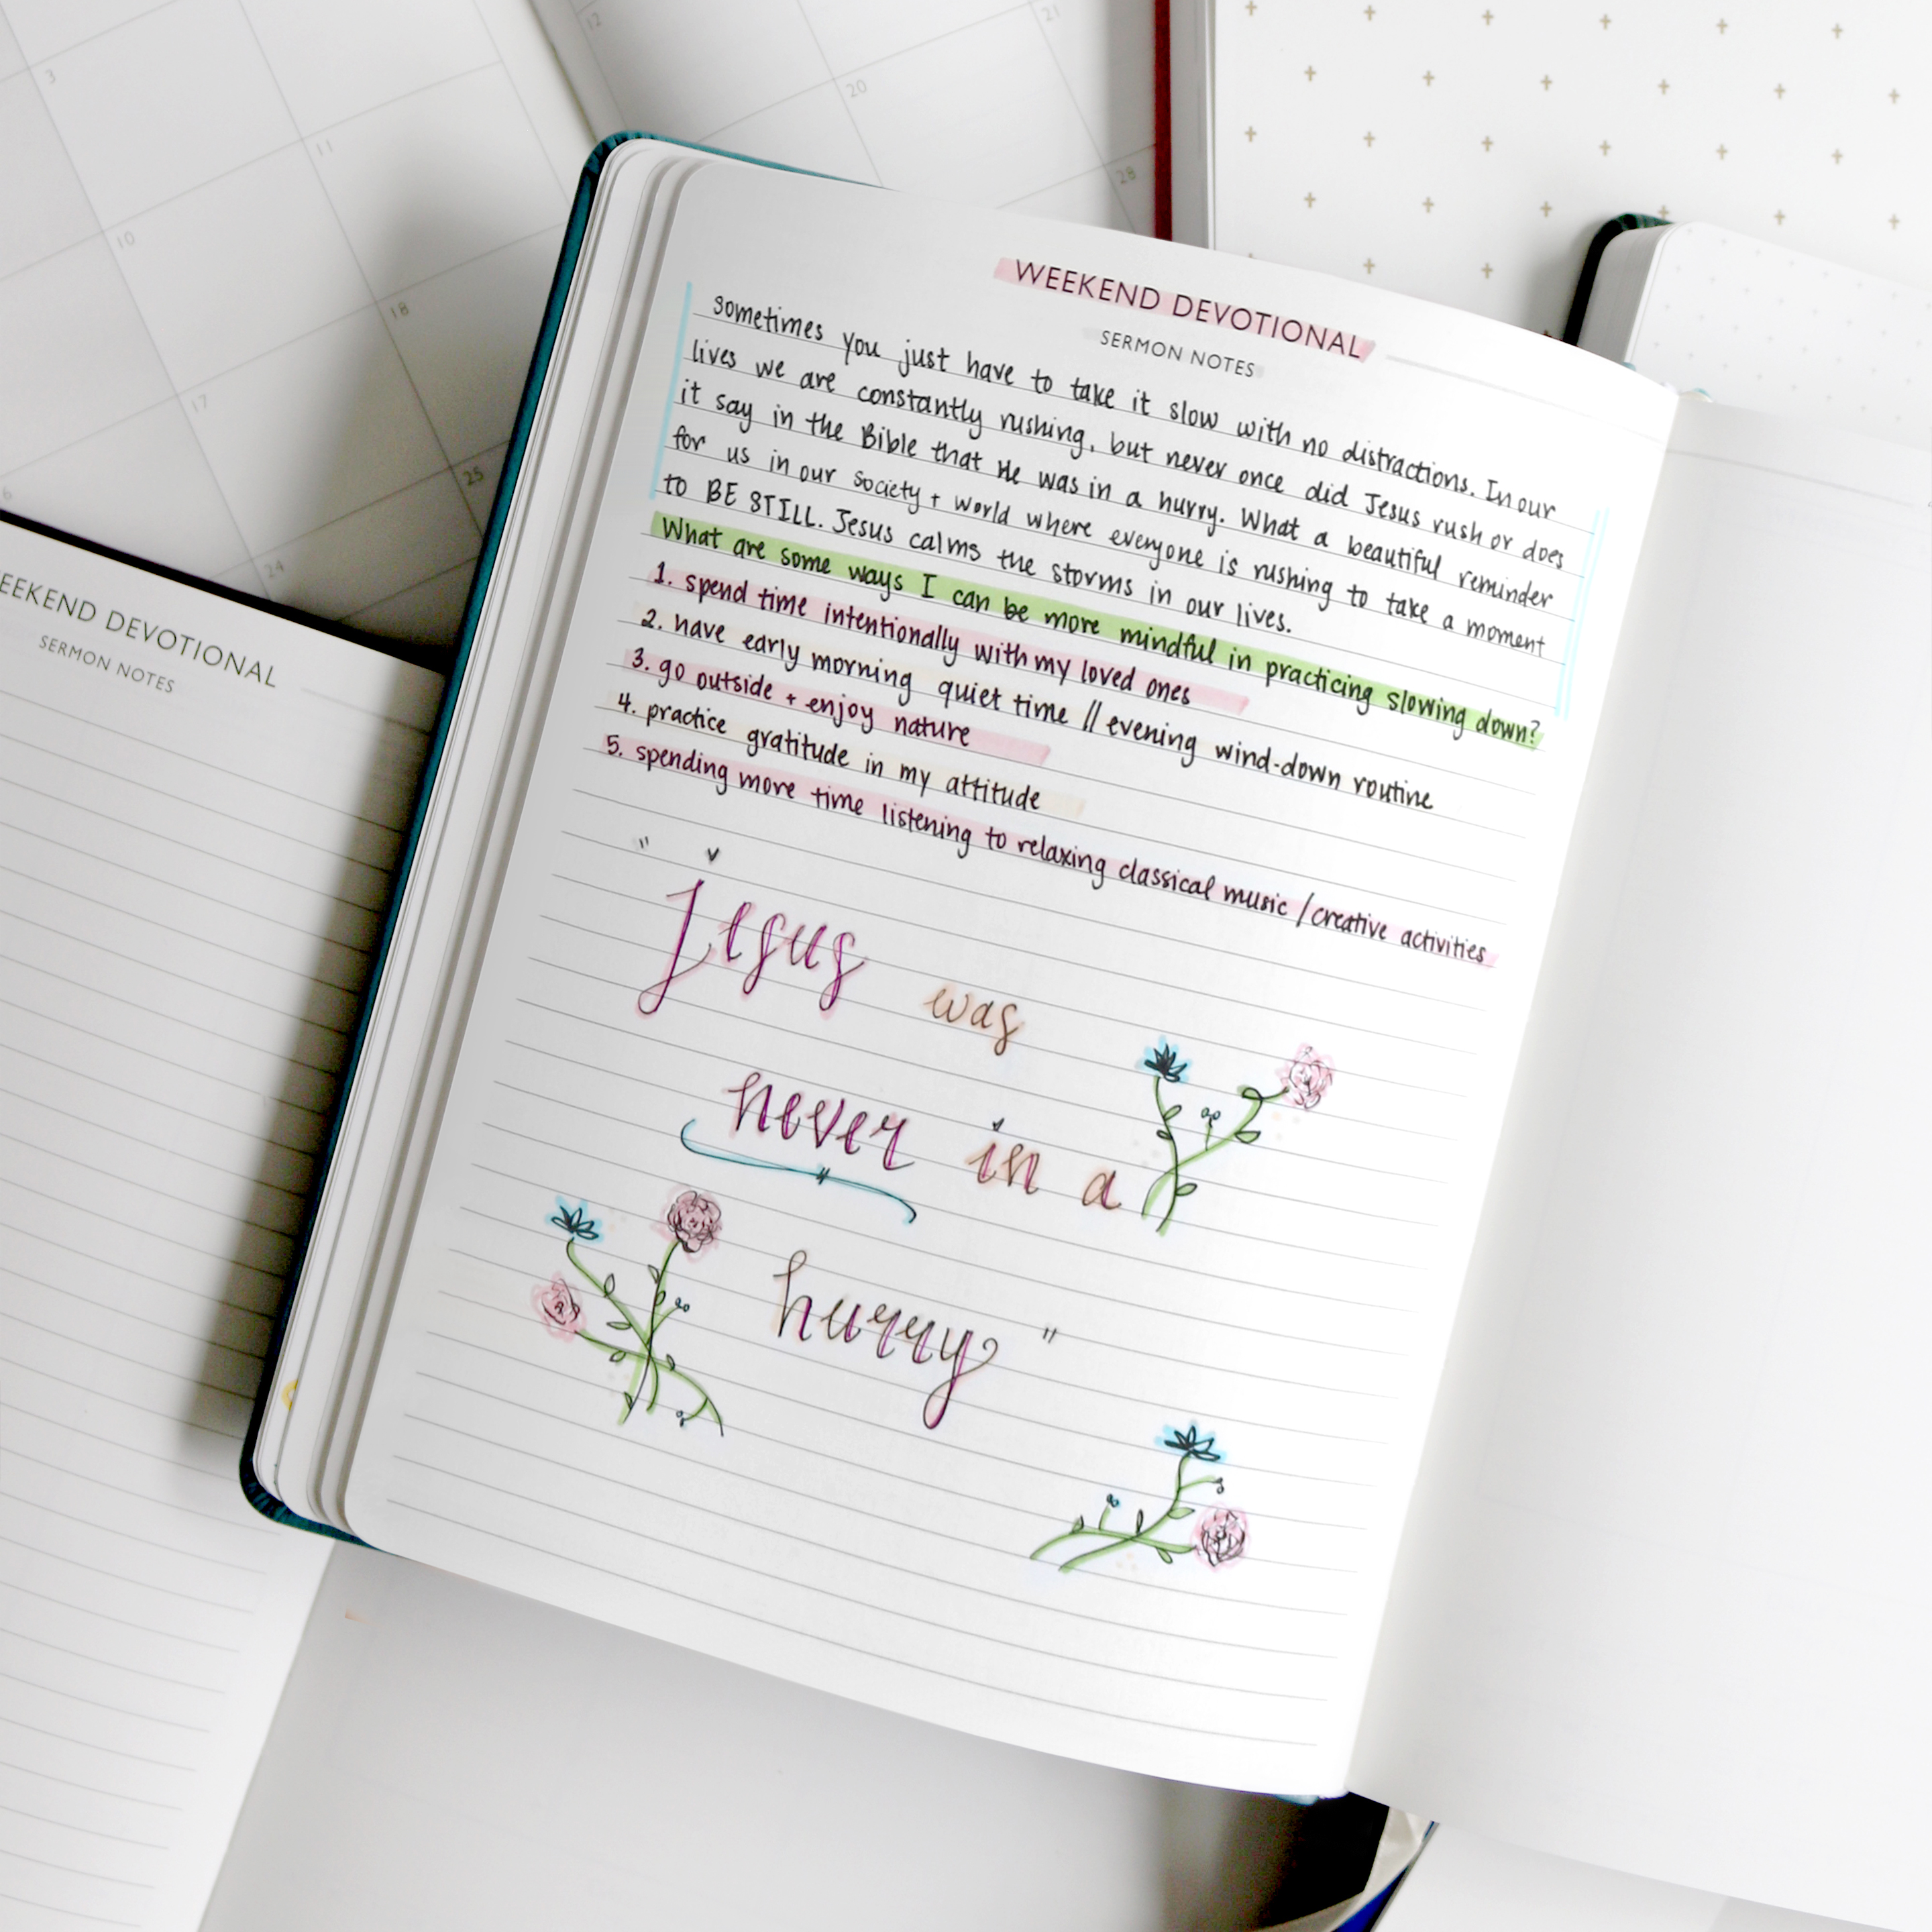 3
10
11
17
18
24
25
12
20
21
28
WEEKEND DEVOTIONAL
SERMON NOTES
sometimes you just have to take it slow with no distractions. In our
lives we are constantly rushing, but never once did Jesus rush or does
it say in the Bible that He was in a hurry. What a beautiful reminder
for us in our society + world where everyone is rushing to take a moment
to BE STILL. Jesus calms the storms in our lives.
What are some ways I can be more mindful in practicing slowing down?
1. spend time intentionally with my loved ones
2. have early morning quiet time // evening wind-down routine
3. go outside + enjoy nature
4. practice gratitude in my attitude
5. spending more time listening to relaxing classical music / creative activities
"Jesus was
never in a
hurry"
EEKEND DEVOTIONAL
SERMON NOTES